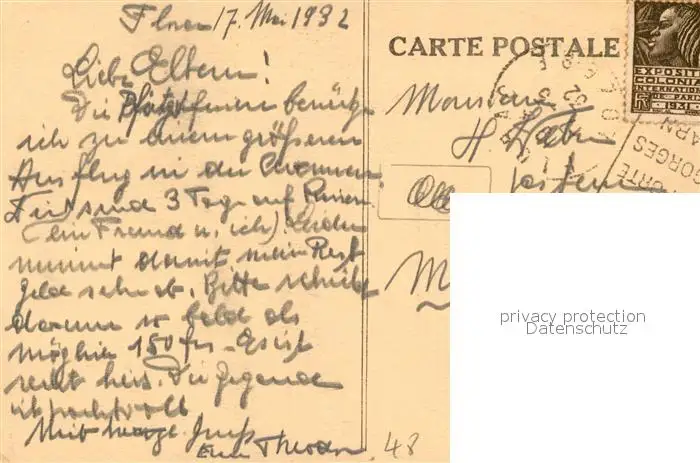 17. Mai 1932
Liebe Eltern!
Die Pfingstferien benütze
ich zu einem grösseren
Ausflug in die Cevennen.
sind 3 Tage auf
(ein Freund u. ich) Leider
nimmt damit mein Rest
geld sehr ab. Bitte schickt
darum so bald als
möglich 150 frs. Es ist
recht heis. Die Gegend
ist prachtvoll
Mit Gruss
Euer Theodor
48
CARTE POSTALE
Monsieur
H
M
EXPOSITION
COLONIALE
INTERNATIONALE
PARIS
1931
GORGES
TARN
privacy protection
Datenschutz